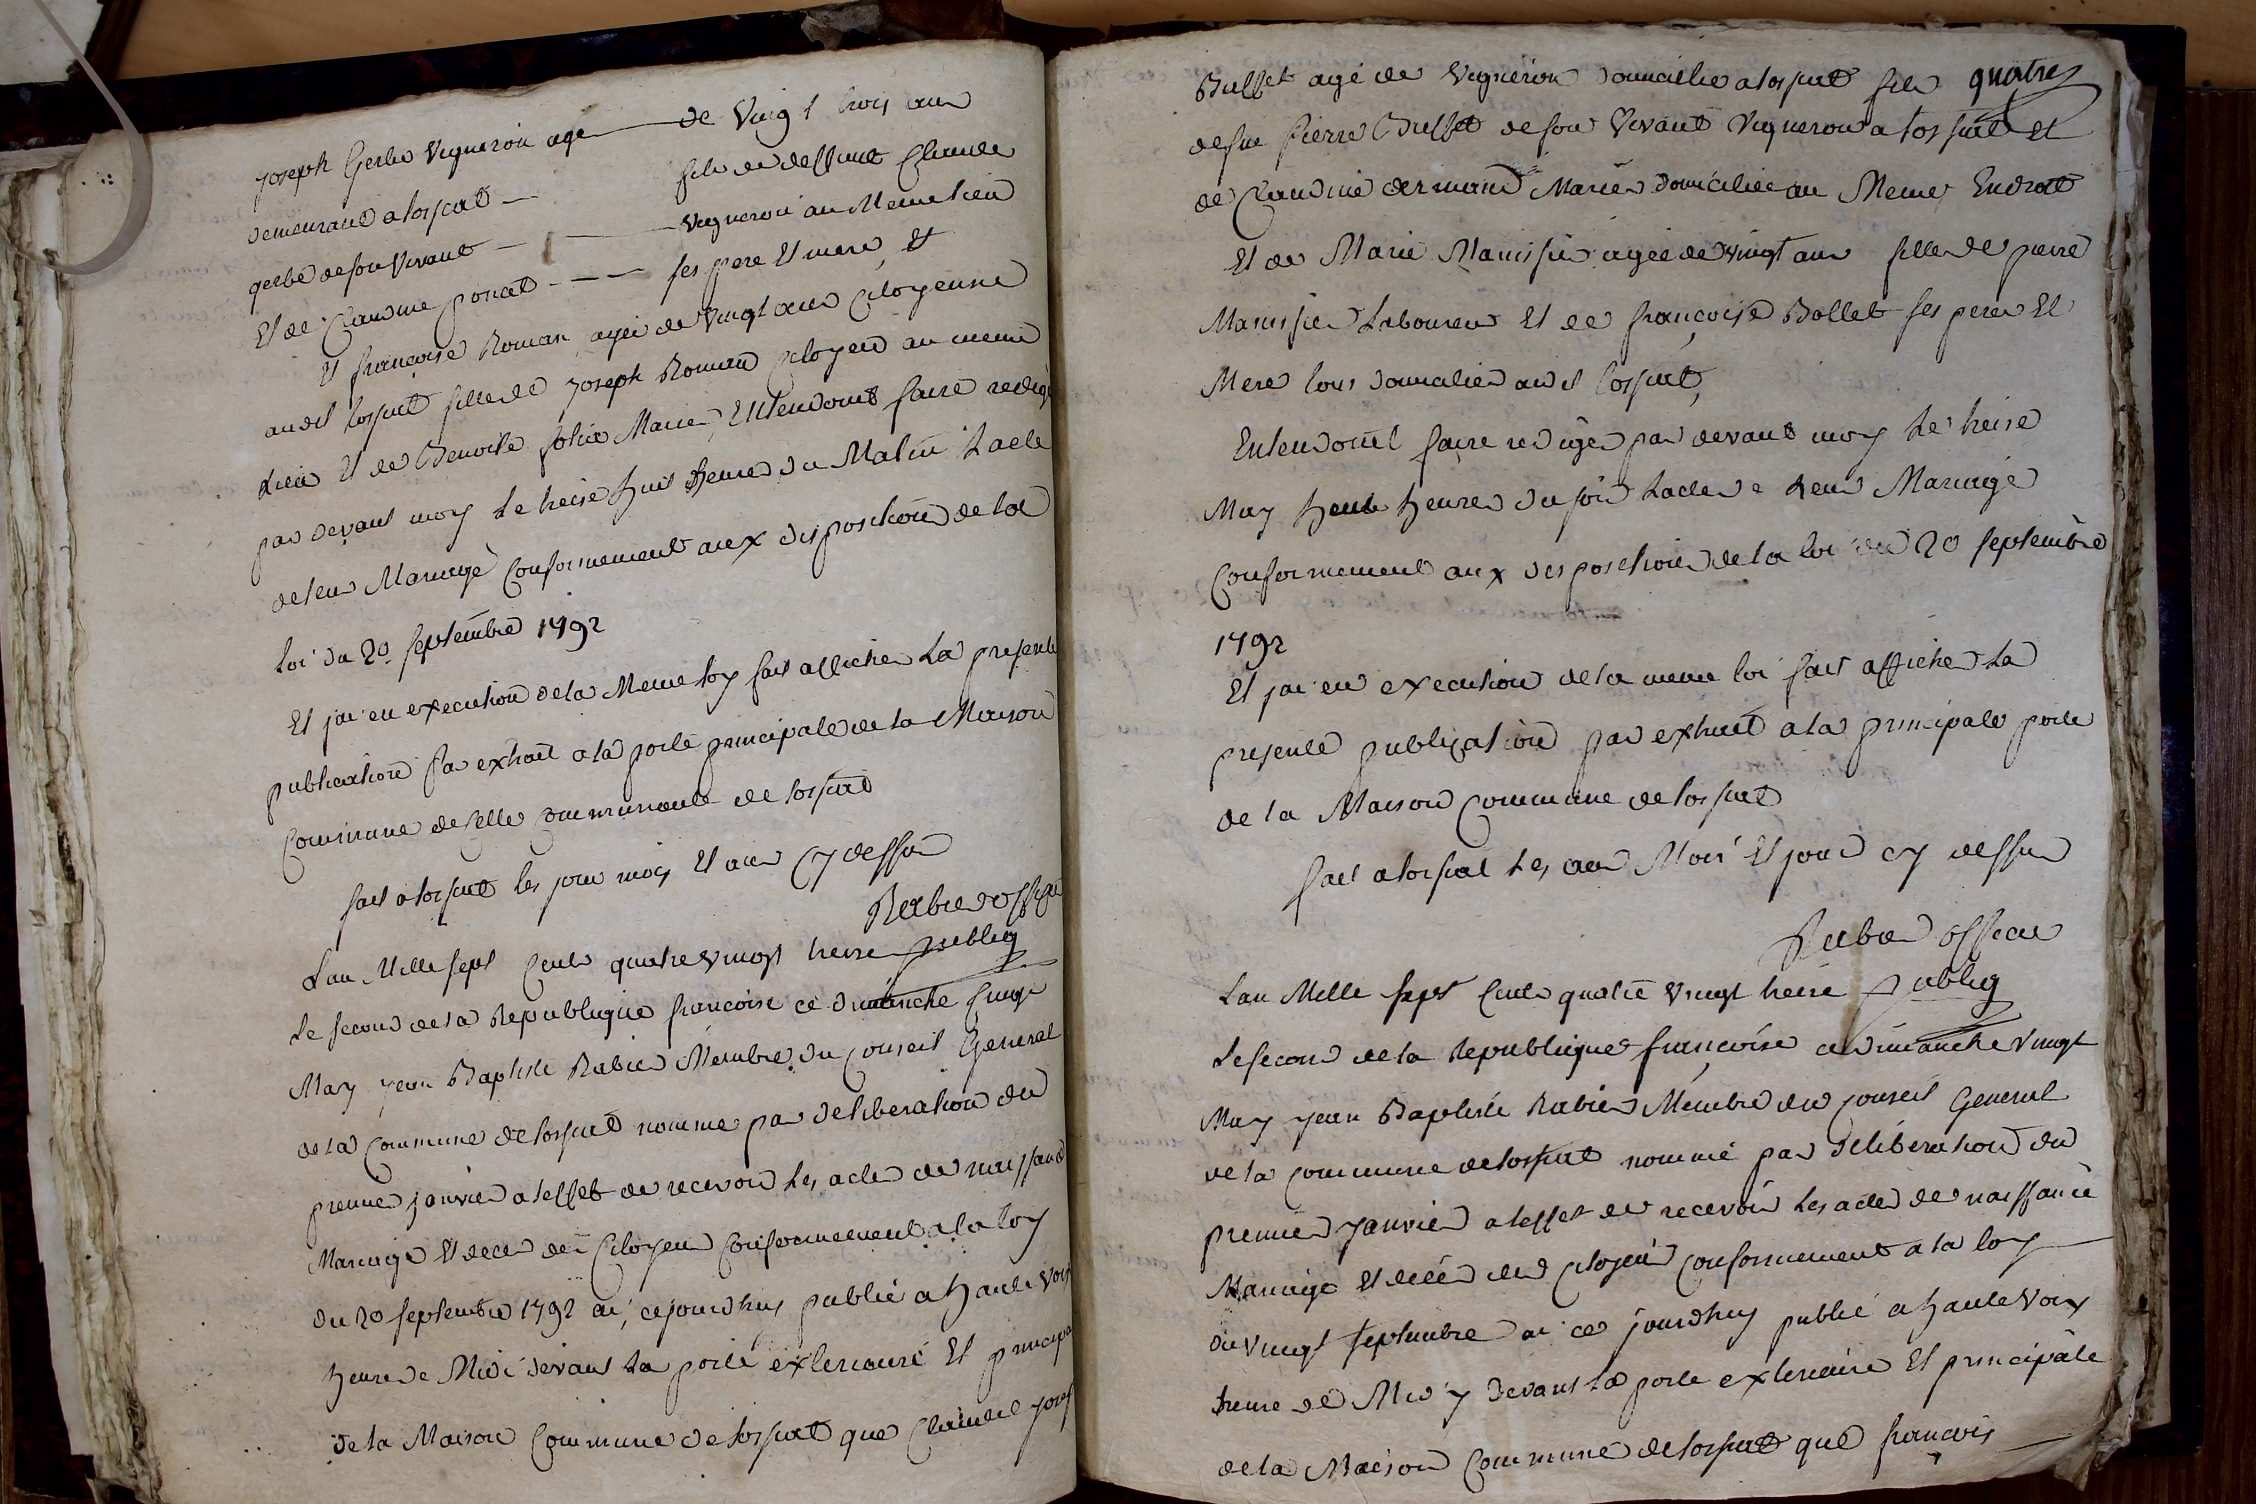 joseph Gerbe Vigneron age de Vingt trois ans
demeurant a torpat fils de deffunt Claude
gerbe de son vivant Vigneron au Meme Lieu
Et de Claudine ponat ses pere Et mere, Et
Et francoise Roman agée de Vingt ans Citoyenne
audit fille de joseph Roman Citoyen au meme
Lieu Et de Benoite Mariés, Entendont faire redigé
par devant moy Le treise huit heure du Matin Lacte
de leur Mariage Conformement aux dispositions de la
loi du 20 septembre 1792
Et jai en execution de la Meme loy fait afficher La presente
publication par extrait a la porte principale de la Maison
Commune de celle communauté de
fait a les jour mois Et an Cy dessus
Rabier officier
Lan Mille sept Cents quatre Vingt treise publiq
Le second de la Republique francoise ce dimanche
May jean Baptiste Rabier Membre du Conseil General
de la Commune de nomme par deliberation du
premier janvier a leffet de recevoir Les actes de naissance
Mariage Et deces des Citoyens Conformement a la loy
du 20 septembre 1792 ai, cejourdhuy publié a haute voix
heure de Midi devant La porte exterieure Et principale
de la Maison Commune de que Claude josef
Buffet agé de Vigneron domicilié a fils quatre
de feu pierre Buffet de son Vivant Vigneron a Et
de Claudine Mariés domiciliée au Meme Endroit
Et de Marie agée de vingt ans fille de pierre
Laboureur Et de francoise Bollet ses pere Et
Mere tous domicilies audit
Entendont faire rediger par devant moy Le treise
May heure du soir Lacte de leur Mariage
Conformement aux dispositions de la loi du 20 septembre
1792
Et jai en execution de la meme loi fait afficher La
presente publication par extrait a la principale porte
de la Maison Commune de
fait a Les an Mois Et jour cy dessus
Rabier officier
Lan Mille sept Cents quatre Vingt treise publiq
Le second de la Republique francoise ce dimanche Vingt
May jean Baptiste Rabier Membre du Conseil General
de la Commune de nommé par deliberation du
premier janvier a leffet de recevoir Les actes de naissance
Mariage Et decés des Citoyens Conformement a la loy
du vingt septembre ai ce jourdhuy publié a haute Voix
heure de Midy devant la porte exterieure Et principale
de la Maison Commune de que francois